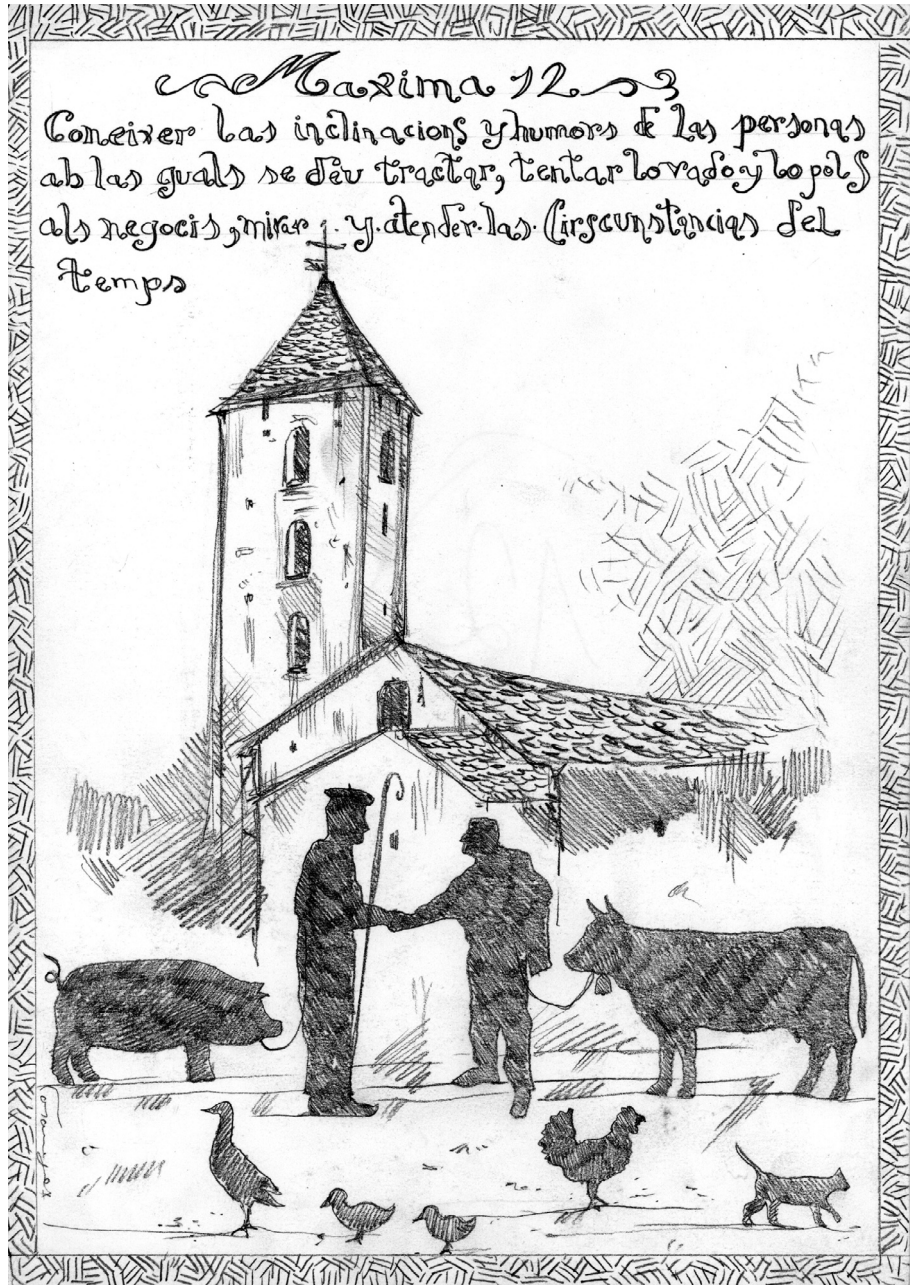 Maxima 12
Coneixer las inclinacions y humors de las personas
ab las quals se deu tractar, tentar lo vado y lo pols
als negocis, mirar y atender las Circunstancias del
temps